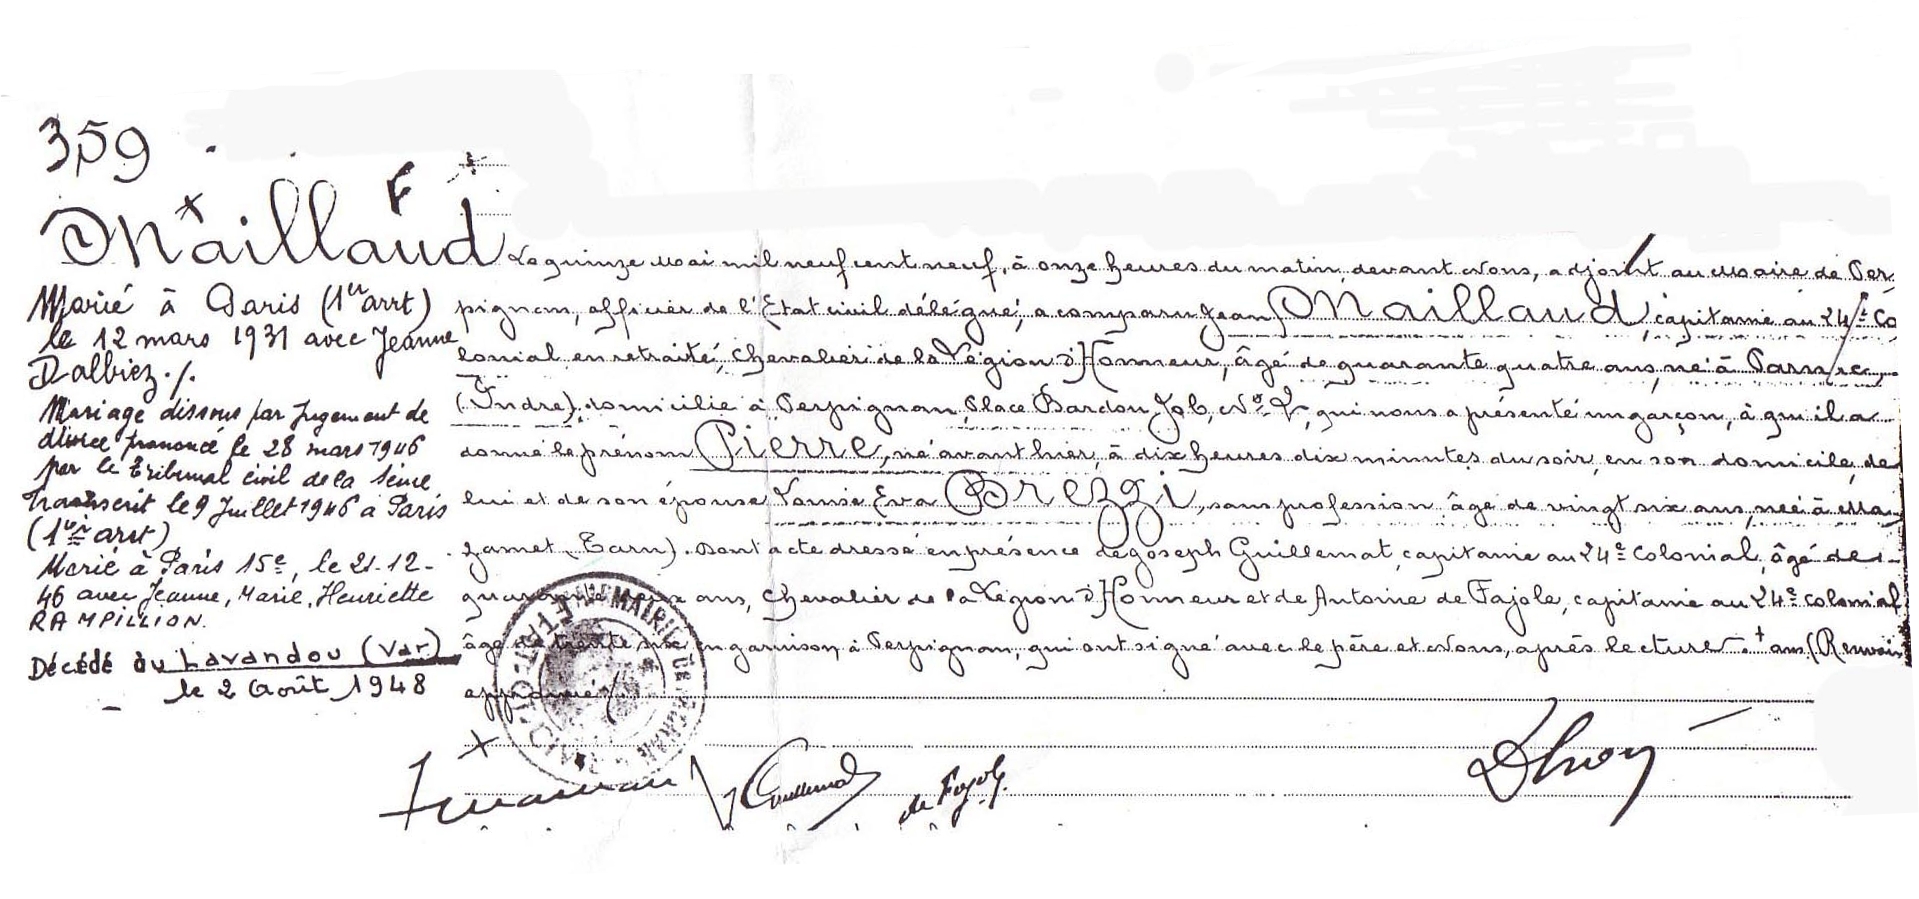 359
Maillaud
Marié à Paris (1er arrt)
le 12 mars 1931 avec Jeanne
Dalbiez ./.
Mariage dissous par Jugement de
divorce prononcé le 28 mars 1946
par le Tribunal civil de la Seine
Transcrit le 9 Juillet 1946 à Paris
(1er arrt)
Marié à Paris 15e, le 21-12-
46 avec Jeanne, Marie, Henriette
RAMPILLION.
Décédé au Lavandou (Var)
le 2 Août 1948
Le quinze mai mil neuf cent neuf, à onze heures du matin, devant Nous, adjoint au maire de Per
pignan, officier de l'Etat civil délégué, a comparu Jean Maillaud, capitaine au 24e Co
lonial en retraite, Chevalier de la Légion d'Honneur, âgé de quarante quatre ans, né à Parnac,
(Indre), domicilié à Perpignan, Place Bardou Job, No 2, qui nous a présenté un garçon, à qui il a
donné le prénom Pierre, né avant hier, à dix heures dix minutes du soir, en son domicile, de
lui et de son épouse Eva Brezzi, sans profession âgé de vingt six ans, née à Ma
zamet (Tarn). Dont acte dressé en présence de Joseph Guillemat, capitaine au 24e Colonial, âgé de
ans, Chevalier de la Légion d'Honneur et de Antoine de Fajole, capitaine au 24e colonial
âgé de trente six en garnison à Perpignan, qui ont signé avec le père et Nous, après lecture. + ans (Renvoi
approuvé)
MAIRIE DE PERPIGNAN
Guillemat
de Fajole